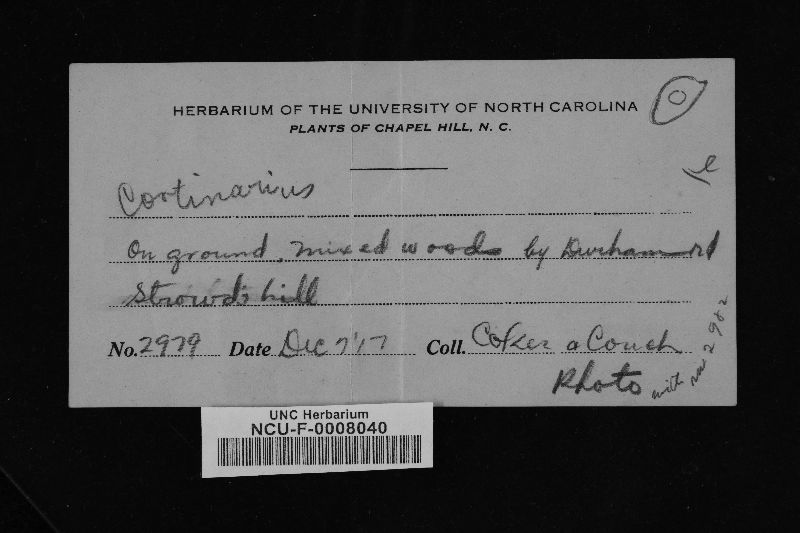 HERBARIUM OF THE UNIVERSITY OF NORTH CAROLINA
PLANTS OF CHAPEL HILL, N. C.
Cortinarius
On ground, mixed woods by Durham rd
Strowd's hill
No. 2979 Date Dec 7'17 Coll. Coker a Couch
Photo with no 2982
UNC Herbarium
NCU-F-0008040